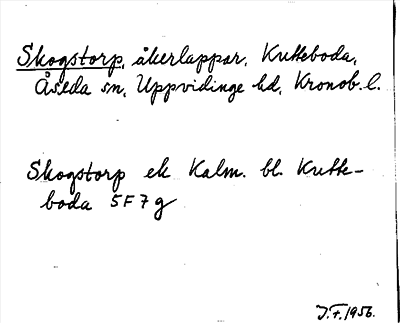 Skogstorp, åkerlappar, Kutteboda,
Åseda sn, Uppvidinge hd, Kronob. l.
Skogstorp ek Kalm. bl. Kutte-
boda 5F7g
J.F. 1956.